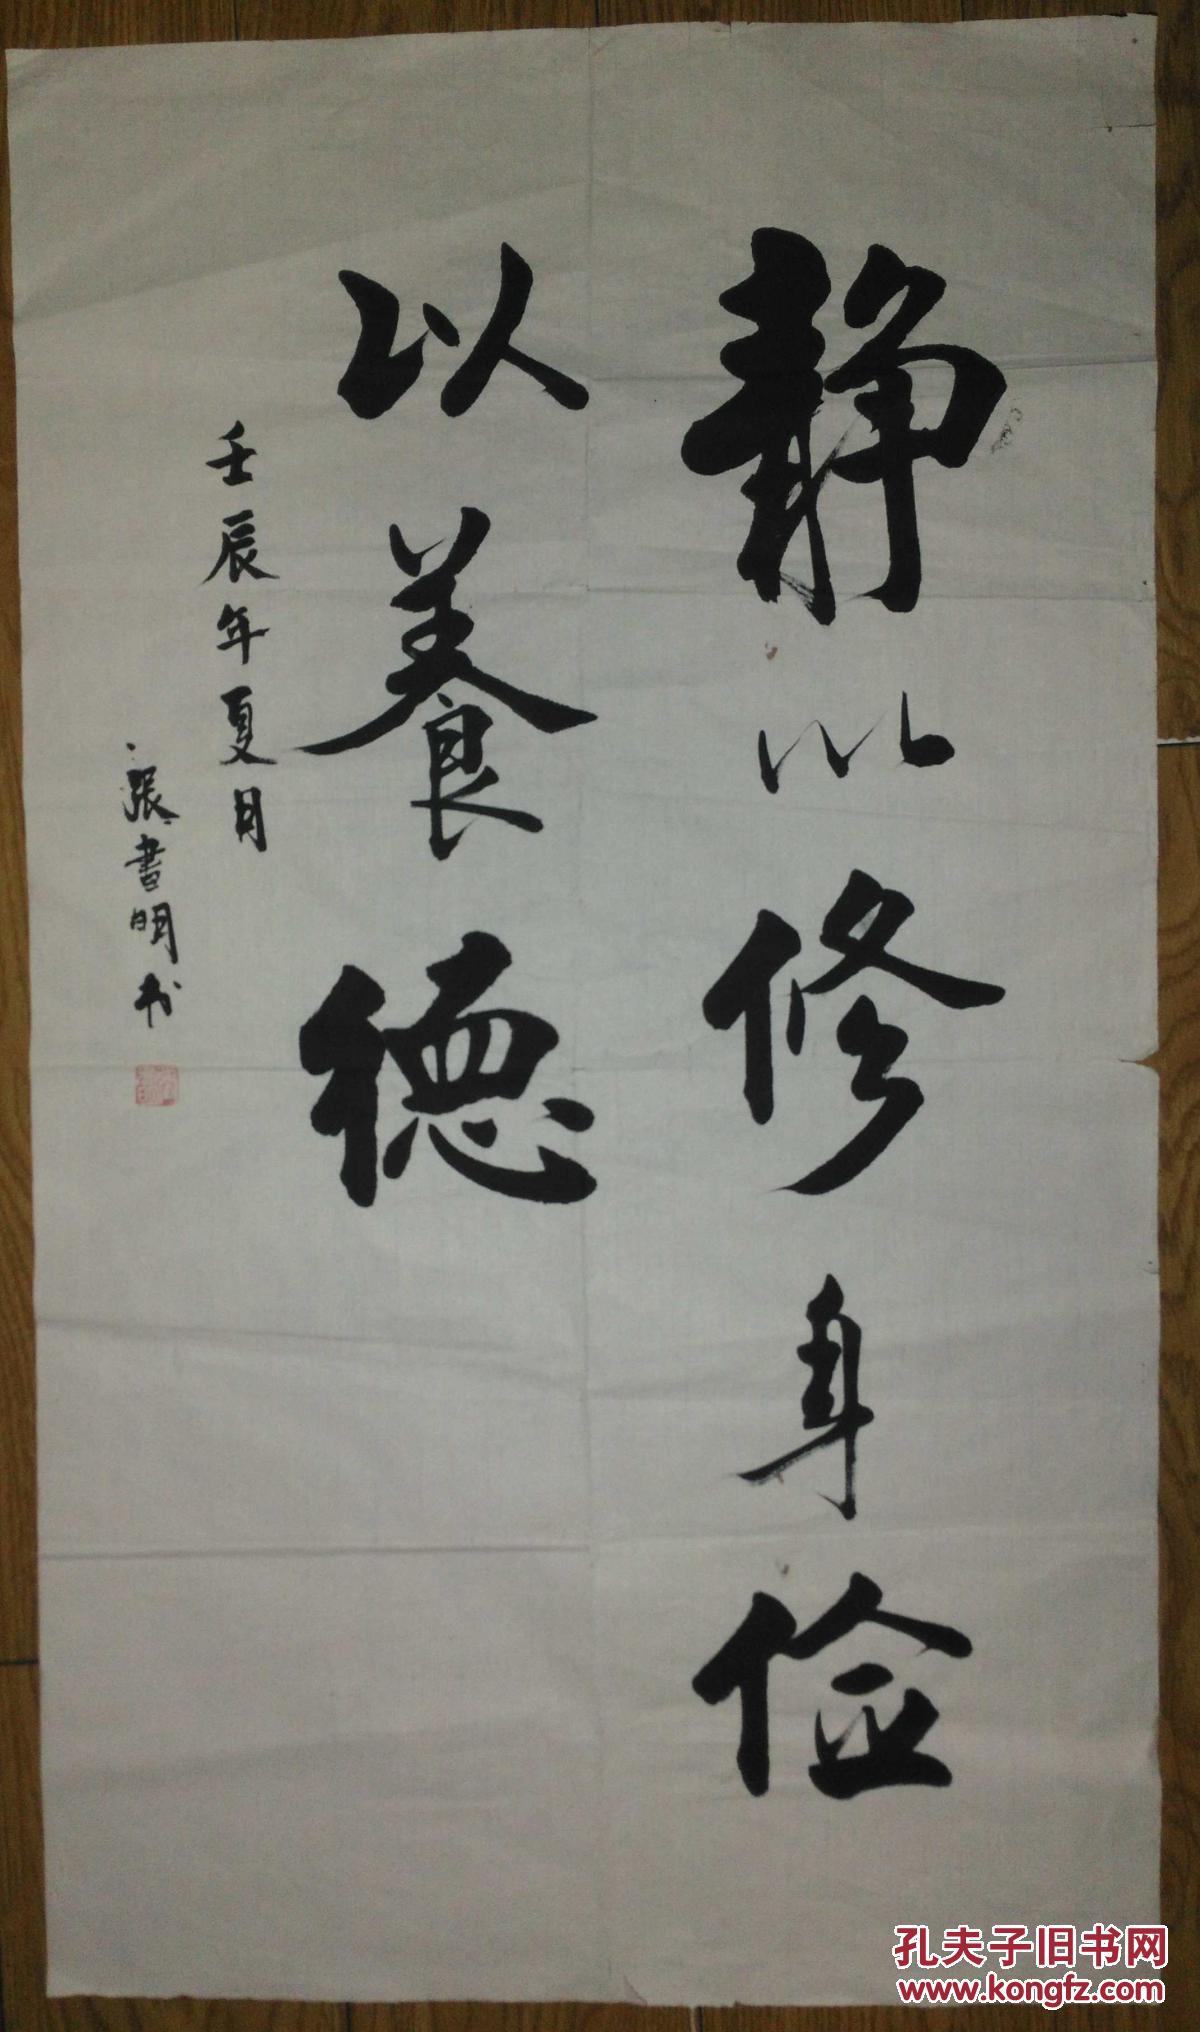 静以修身俭
以養德
壬辰年夏月
張書明书
孔夫子旧书网
www.kongfz.com